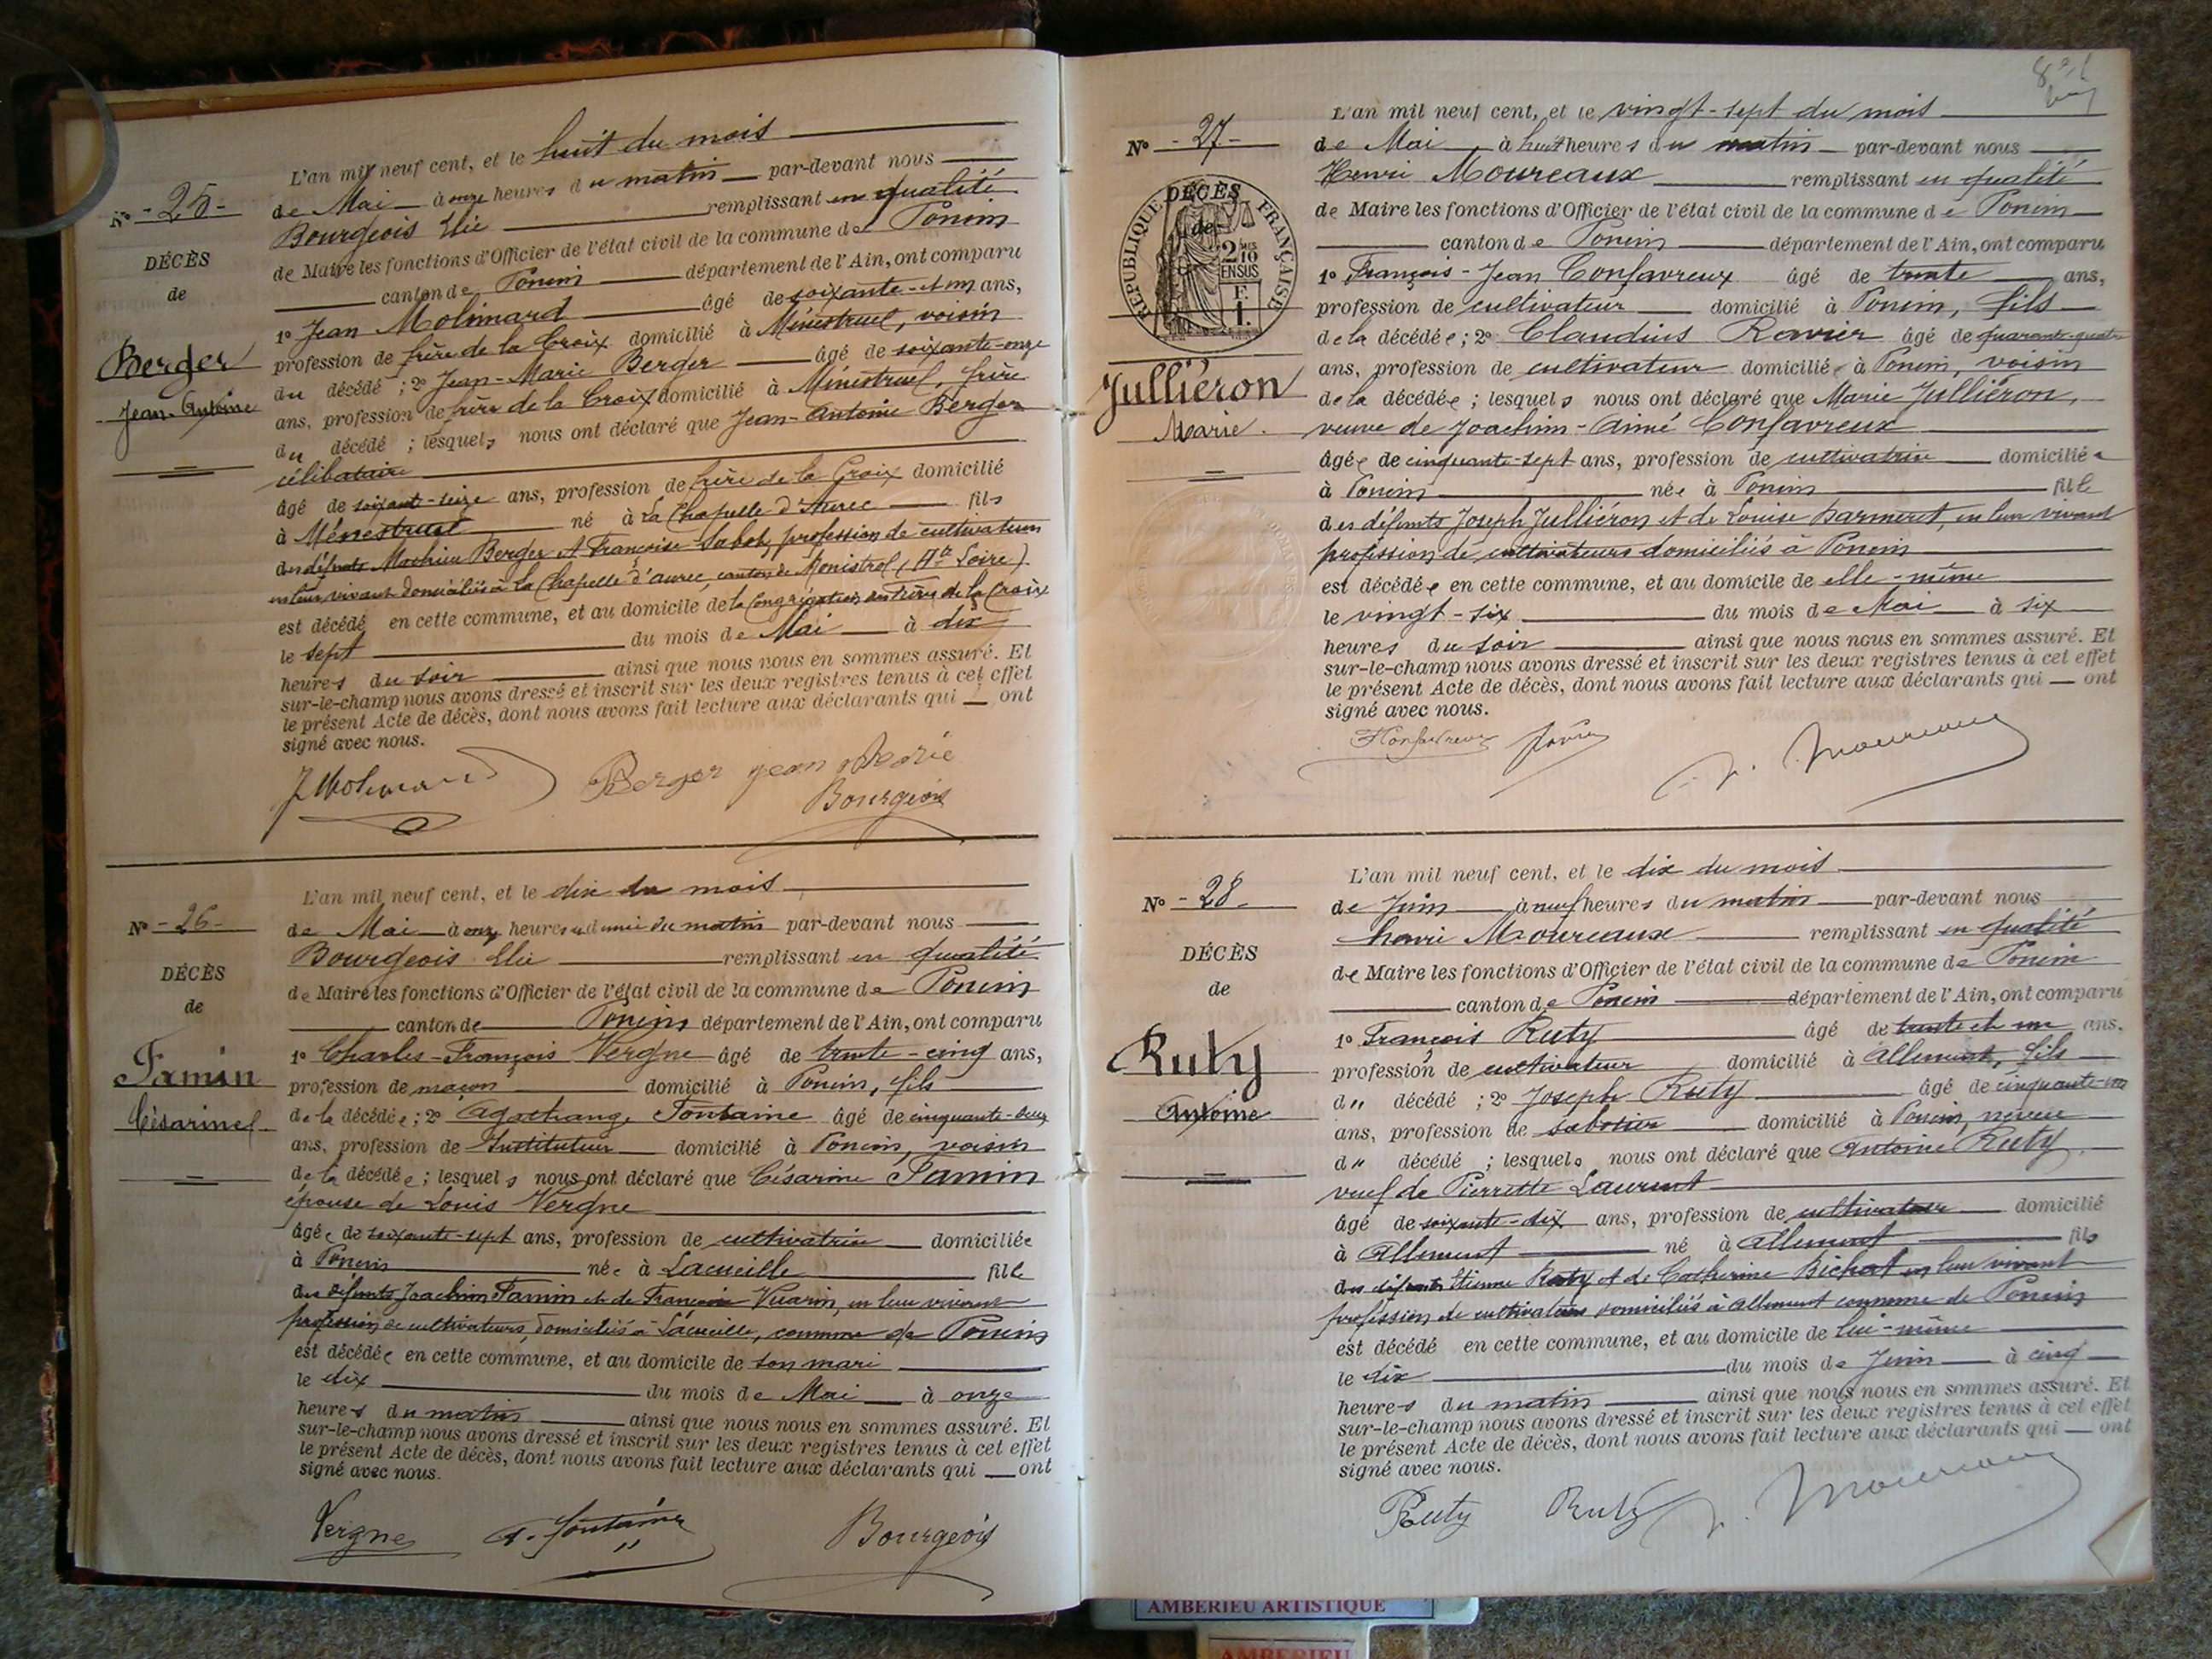 L'an mil neuf cent, et le huit du mois
N° - 25 -
de Mai à onze heures du matin par-devant nous
Bourgeois Elie remplissant en qualité
de Maire les fonctions d'Officier de l'état civil de la commune de Poncin
canton de Poncin département de l'Ain, ont comparu
DÉCÈS
de
Berger
Jean-Antoine
1° Jean Molimard âgé de soixante-et un ans,
profession de frère de la Croix domicilié à Ménestruel, voisin
du décédé ; 2° Jean-Marie Berger âgé de soixante-onze
ans, profession de frère de la Croix domicilié à Ménestruel, frère
du décédé ; lesquels nous ont déclaré que Jean-Antoine Berger
célibataire
âgé de soixante-seize ans, profession de frère de la Croix domicilié
à Ménestruel né à La Chapelle d'Aurec fils
des défunts Mathieu Berger et Françoise Sabot, profession de cultivateurs
en leur vivant domiciliés à La Chapelle d'aurec, canton de Monistrol (Hte Loire)
est décédé en cette commune, et au domicile de la Congrégation des Frères de la Croix
le sept du mois de Mai à dix
heures du soir ainsi que nous nous en sommes assuré. Et
sur-le-champ nous avons dressé et inscrit sur les deux registres tenus à cet effet
le présent Acte de décès, dont nous avons fait lecture aux déclarants qui ont
signé avec nous.
J Molimard Berger jean Marie
Bourgeois
L'an mil neuf cent, et le dix du mois
N° - 26 -
de Mai à onze heures et demie du matin par-devant nous
Bourgeois Elie remplissant en qualité
de Maire les fonctions d'Officier de l'état civil de la commune de Poncin
canton de Poncin département de l'Ain, ont comparu
DÉCÈS
de
Famin
Césarine
1° Charles-François Vergne âgé de trente-cinq ans,
profession de maçon domicilié à Poncin, fils
de la décédée ; 2° Agathange Fontaine âgé de cinquante-deux
ans, profession de Instituteur domicilié à Poncin, voisin
de la décédée ; lesquels nous ont déclaré que Césarine Famin
épouse de Louis Vergne
âgée de soixante-sept ans, profession de cultivatrice domiciliée
à Poncin née à Lacueille fille
des défunts Joachim Famin et de Françoise Vuarin, en leur vivant
profession de cultivateurs, domiciliés à Lacueille, commune de Poncin
est décédée en cette commune, et au domicile de son mari
le dix du mois de Mai à onze
heures du matin ainsi que nous nous en sommes assuré. Et
sur-le-champ nous avons dressé et inscrit sur les deux registres tenus à cet effet
le présent Acte de décès, dont nous avons fait lecture aux déclarants qui ont
signé avec nous.
Vergne A. Fontaine Bourgeois
L'an mil neuf cent, et le vingt-sept du mois
N° - 27 -
de Mai à huit heures du matin par-devant nous
Henri Moureaux remplissant en qualité
de Maire les fonctions d'Officier de l'état civil de la commune de Poncin
canton de Poncin département de l'Ain, ont comparu
DÉCÈS
de
RÉPUBLIQUE FRANÇAISE
2/10
EN SUS
Julliéron
Marie.
1° François-Jean Confavreux âgé de trente ans,
profession de cultivateur domicilié à Poncin, fils
de la décédée ; 2° Claudius Ravier âgé de quarante-quatre
ans, profession de cultivateur domicilié à Poncin, voisin
de la décédée ; lesquels nous ont déclaré que Marie Julliéron,
veuve de Joachim-Aimé Confavreux
âgée de cinquante-sept ans, profession de cultivatrice domiciliée
à Poncin née à Poncin fille
des défunts Joseph Julliéron et de Louise Darmeret, en leur vivant
profession de cultivateurs domiciliés à Poncin
est décédée en cette commune, et au domicile de elle-même
le vingt-six du mois de Mai à six
heures du soir ainsi que nous nous en sommes assuré. Et
sur-le-champ nous avons dressé et inscrit sur les deux registres tenus à cet effet
le présent Acte de décès, dont nous avons fait lecture aux déclarants qui ont
signé avec nous.
Confavreux Ravier Moureaux
L'an mil neuf cent, et le dix du mois
N° - 28 -
de Juin à neuf heures du matin par-devant nous
henri Moureaux remplissant en qualité
de Maire les fonctions d'Officier de l'état civil de la commune de Poncin
canton de Poncin département de l'Ain, ont comparu
DÉCÈS
de
Ruty
Antoine
1° François Ruty âgé de trente et un ans,
profession de cultivateur domicilié à Allement, fils
du décédé ; 2° Joseph Ruty âgé de cinquante-un
ans, profession de sabotier domicilié à Poncin, neveu
du décédé ; lesquels nous ont déclaré que Antoine Ruty,
veuf de Pierrette Laurent
âgé de soixante-dix ans, profession de cultivateur domicilié
à Allement né à Allement fils
des défunts Etienne Ruty et de Catherine Bichat en leur vivant
profession de cultivateurs domiciliés à Allement commune de Poncin
est décédé en cette commune, et au domicile de lui-même
le dix du mois de Juin à cinq
heures du matin ainsi que nous nous en sommes assuré. Et
sur-le-champ nous avons dressé et inscrit sur les deux registres tenus à cet effet
le présent Acte de décès, dont nous avons fait lecture aux déclarants qui ont
signé avec nous.
Ruty Ruty Moureaux
AMBERIEU ARTISTIQUE
AMBERIEU